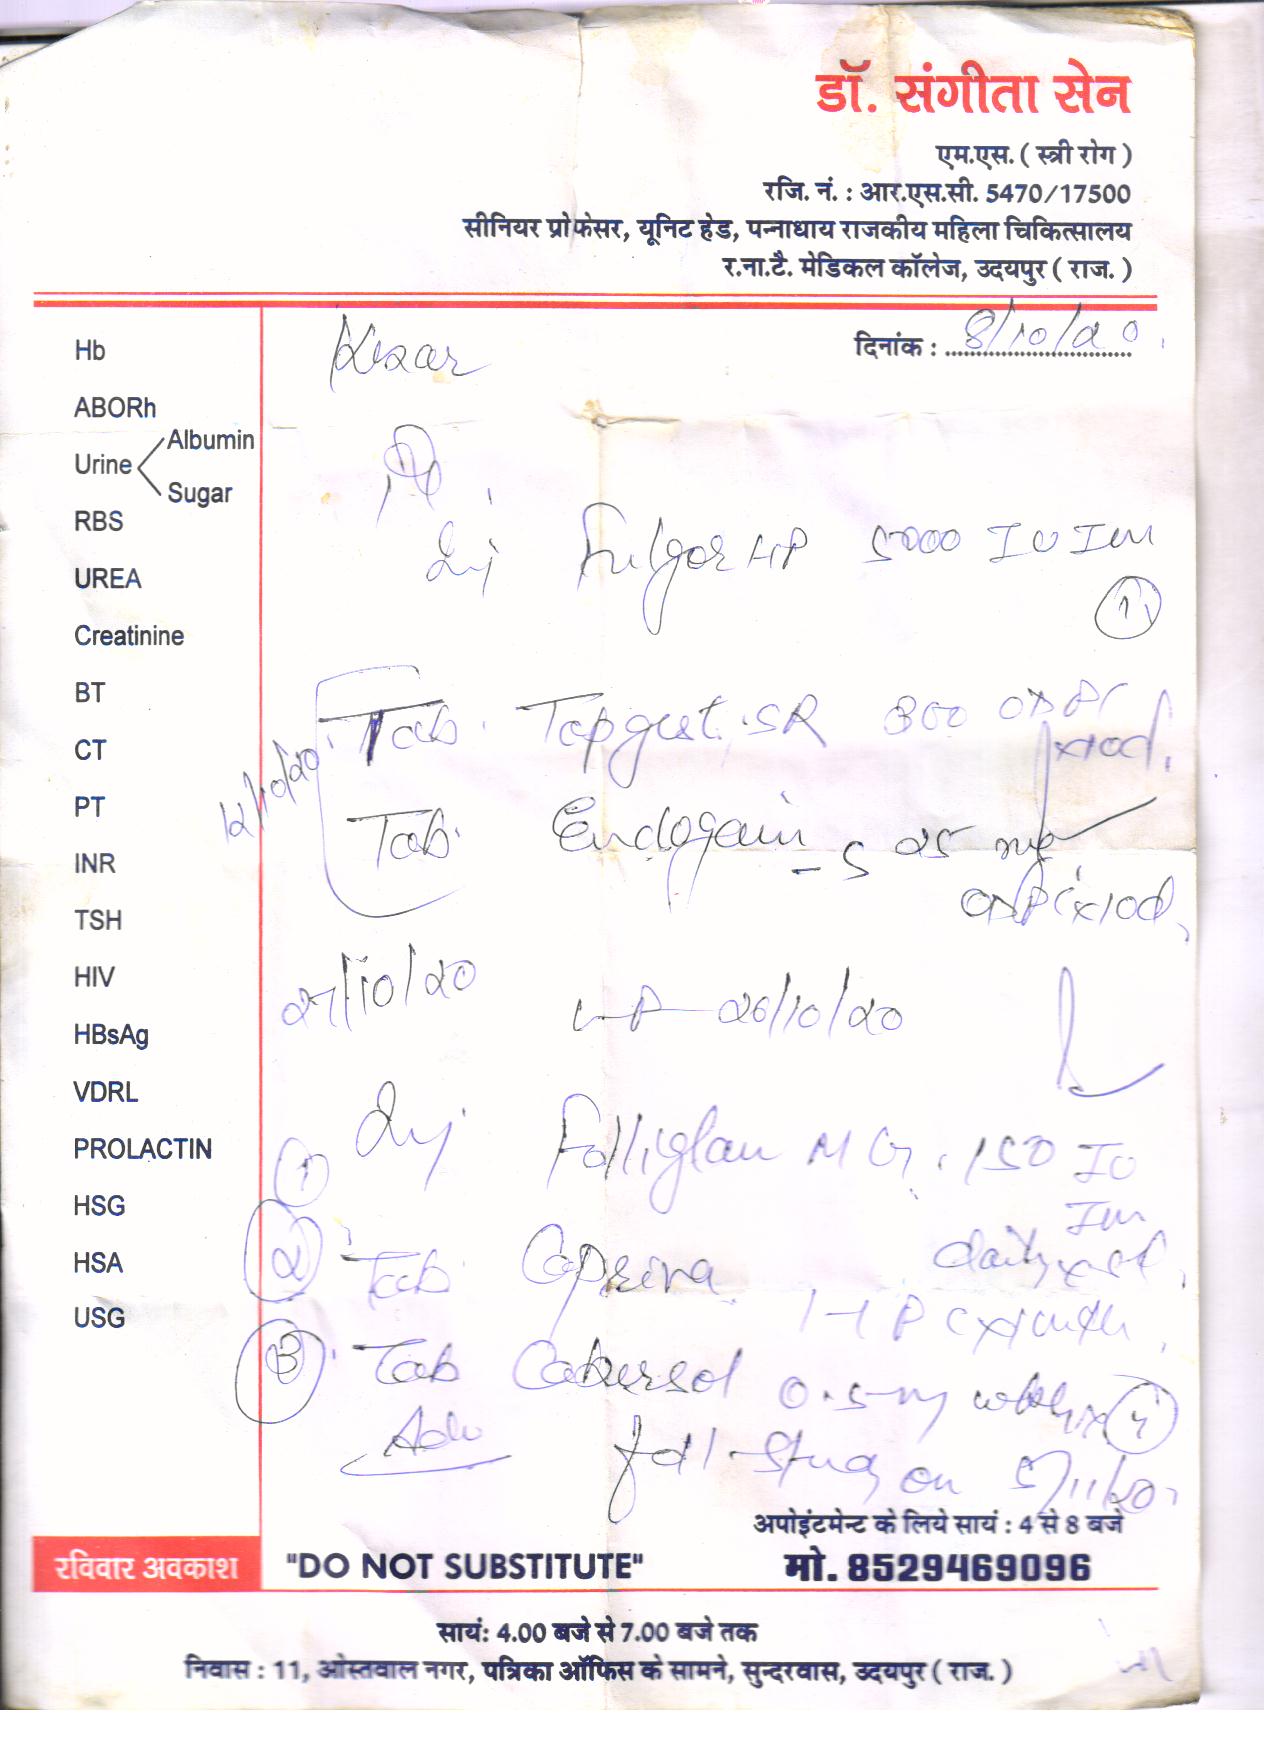 डॉ. संगीता सेन
एम.एस. ( स्त्री रोग )
रजि. नं. : आर.एस.सी. 5470/17500
सीनियर प्रोफेसर, यूनिट हेड, पन्नाधाय राजकीय महिला चिकित्सालय
र.ना.टै. मेडिकल कॉलेज, उदयपुर ( राज. )
दिनांक : 8/10/20
Hb
ABORh
Urine Albumin
Sugar
RBS
UREA
Creatinine
BT
CT
PT
INR
TSH
HIV
HBsAg
VDRL
PROLACTIN
HSG
HSA
USG
Inj HP 5000 IU Im
1
Tab. SR 300 OD PC
x10d.
12/10/20
Tab. Endogain - 25 mg
OD PC x10d.
27/10/20 LMP 26/10/20
1 Inj Folliglan MG. 150 IU
Im
daily
2 Tab
3 Tab Cabersol 0.5mg 4
Adv foll-study on 5/11/20
अपोइंटमेन्ट के लिये सायं : 4 से 8 बजे
रविवार अवकाश
"DO NOT SUBSTITUTE"
मो. 8529469096
सायं: 4.00 बजे से 7.00 बजे तक
निवास : 11, ओस्तवाल नगर, पत्रिका ऑफिस के सामने, सुन्दरवास, उदयपुर ( राज. )